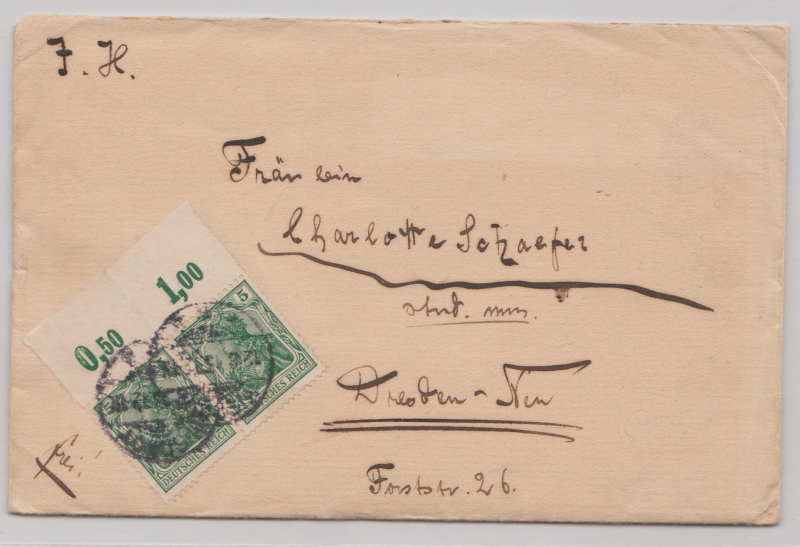 J. H.
Fräulein
Charlotte Schaefer
stud. mus.
Dresden-Neu
Forststr. 26.
frei!
0,50
1,00
5
DEUTSCHES REICH
DEUTSCHES REICH